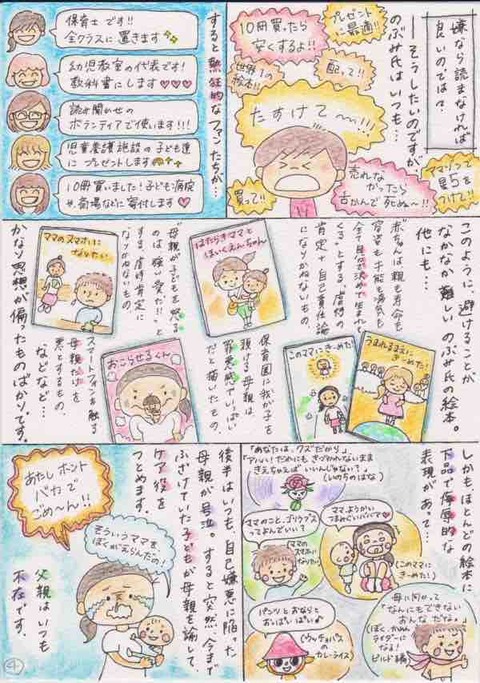 嫌なら読まなければ
良いのでは？
―そうしたいのですが
のぶみ氏はいつも…
プレゼントに最適!!
10冊買ったら安くするよ!!
世界1の絵本!!
配って!!
たすけて〜!!!
売れなかったら
古かんで死ぬ〜!!
買って!!
星5を
つけて!!
すると熱狂的なファンたちが…
保育士です!!
全クラスに置きます
幼児教室の代表です!
教科書にします♡♡♡
読み聞かせの
ボランティアで使います!!!
児童養護施設の子ども達
にプレゼントします
10冊買いました!子ども病院
や、斎場などに寄付します♥
このように、避けることが
なかなか難しいのぶみ氏の絵本。
他にも…
赤ちゃんは親も寿命も
容姿も才能も病気も
全て自分で決めて生まれて
くる、とする、虐待の
肯定＋自己責任論
になりかねないもの。
うまれるまえにきーめた!
このママにきーめた!
はたらきママと
ほいくえんちゃん
保育園に我が子を
預ける母親は、
罪悪感でいっぱい
だと描いたもの。
"母親が子どもを怒る
のは全て愛だ!!"と
する、虐待肯定に
なりかねないもの。
おこらせるくん
ママのスマホになりたい
スマートフォンを触る
母親だけを
悪とするもの。
などなど…
かなり思想が偏ったものばかりです。
しかもほとんどの絵本に
下品で侮辱的な
表現があって…
「あなたは、クズだから」
「アルい!だれにもきづかれないまま
きえちゃえばいいんじゃない?」
(いのちのはな)
ママのこと、ゴリラブス
ってよんでいい?
(ママのスマホになりたい)
(このママにきーめた!)
母に向かって
「なんにもできない
おんなだな。」
(ぼく、かめんライダーになる!
ビルド編)
パンツとおならと
おっぱいぱい♪
(うんちっちパスのカレーライス)
後半はいつも、自己嫌悪に陥った
母親が号泣。すると突然、今まで
ふざけていた子どもが母親を諭して、
ケア役を
つとめます。
あたし ホント
バカで
ごめ〜ん!!
そういうママを
ぼくがえらんだの!
父親はいつも
不在です。
④